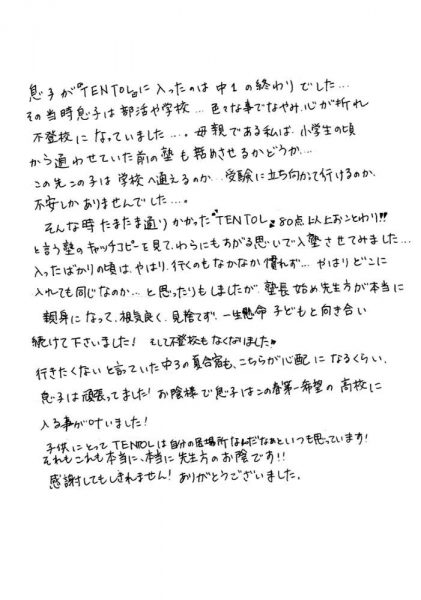 息子が『TENTOL』に入ったのは中1の終わりでした…
その当時息子は部活や学校…色々な事でなやみ、心が折れ
不登校になっていました…。母親である私は、小学生の頃
から通わせていた前の塾も辞めさせるかどうか…
この先この子は学校へ通えるのか…受験に立ち向かって行けるのか、
不安しかありませんでした…。
そんな時たまたま通りかかった"TENTOL"80点以上おことわり!!
と言う塾のキャッチコピーを見て、わらにもすがる思いで入塾させてみました…
入ったばかりの頃は、やはり、行くのもなかなか慣れず…やはりどこに
入れても同じなのか…と思ったりもしましたが、塾長始め先生方が本当に
親身になって、根気良く、見捨てず、一生懸命子どもと向き合い
続けて下さいました!そして不登校もなくなりました。
行きたくないと言っていた中3の夏合宿も、こちらが心配になるくらい、
息子は頑張ってました!お陰様で息子はこの春第一希望の高校に
入る事が叶いました!
子供にとってTENTOLは自分の居場所なんだなぁといつも思っています!
それもこれも本当に、本当に先生方のお陰です!!
感謝してもしきれません!ありがとうございました。